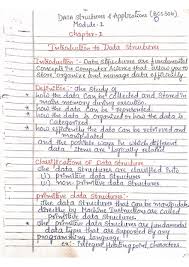 Data Structures & Applications (BCS304)
Module-1
Chapter-1
Introduction to Data Structures
Introduction :- Data Structures are fundamental
Concepts in Computer Science that allows you to
Store, organize and manage data efficiently.
Definition :- The Study of
* how the data can be Collected and Stored in
main memory during execution.
* how the data can be represented.
* how the data is organized or how the data is
Categorized
* how efficiently the data can be retrieved and
manipulated
* and the possible ways in which different
data Items are logically related
Classifications of Data Structures
The data structures are classified into
(i) primitive data structures
(ii) non primitive data structures
primitive data structures :-
The data structures that can be manipulated
directly by Machine Instructions are called
primitive data structures.
The primitive data structures are fundamental
data types that are Supported by any
programming language.
ex:- Integer, floating point, characters.